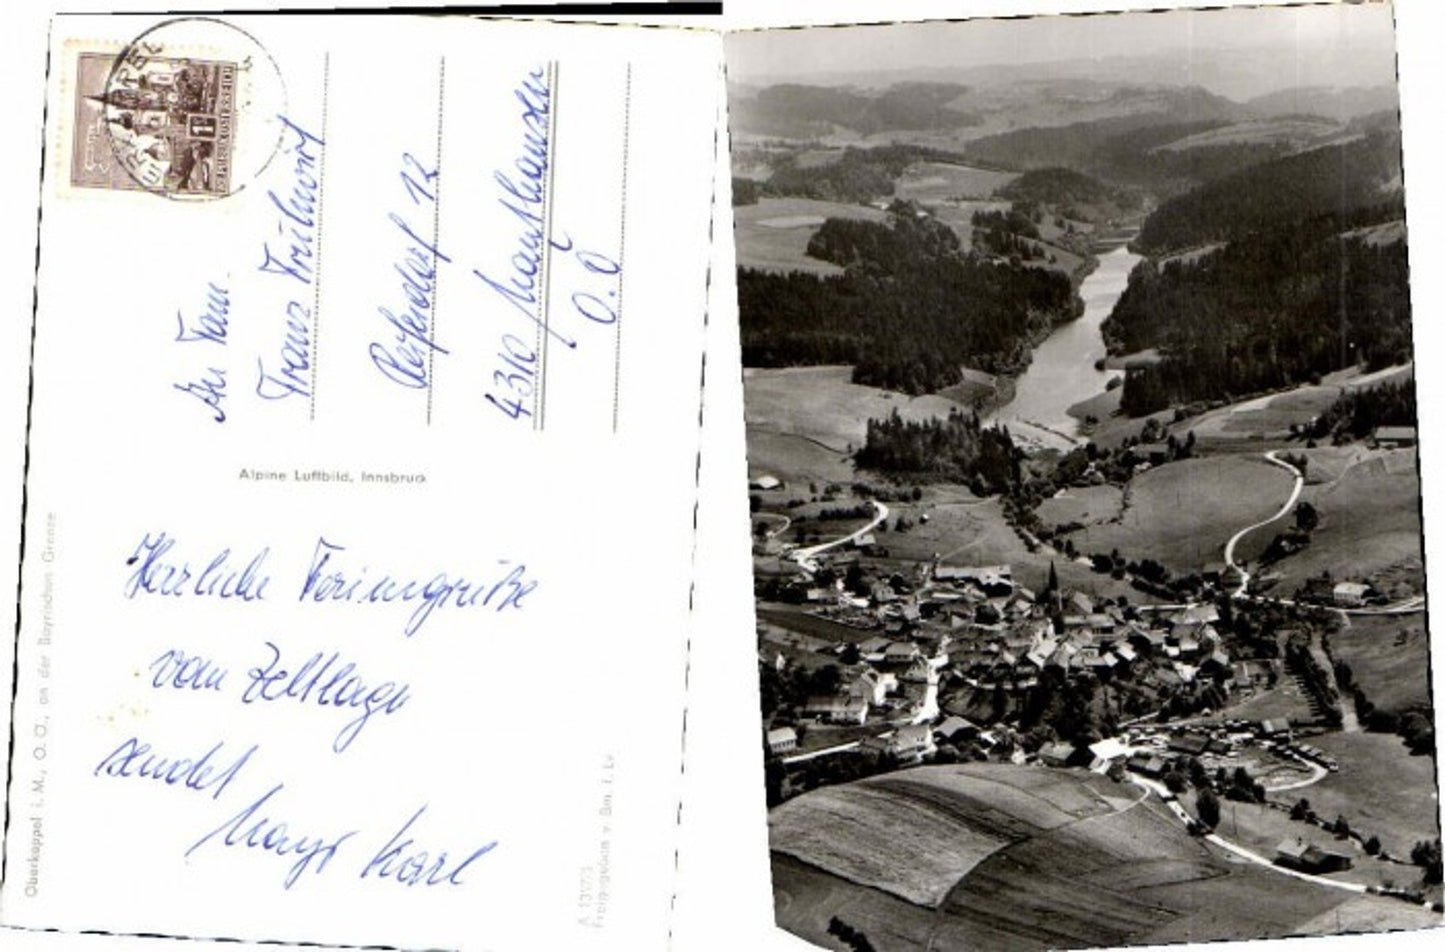 REPUBLIK ÖSTERREICH
1
An Fam.
Franz
Reifendorf 12
4310 Mauthausen
O.Ö
Alpine Luftbild, Innsbruck
Herzliche Feriengrüße
vom Zeltlager
sendet
Mayr Karl
Oberkappel i. M., O. Ö., an der Bayrischen Grenze
A 13973
Freigegeben v. Bm. f. Lv